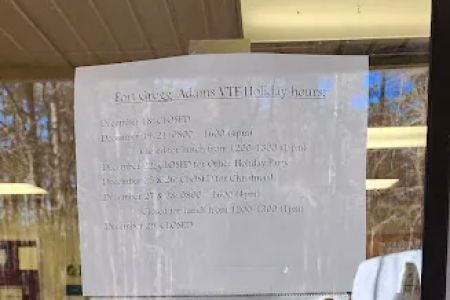 Fort Gregg Adams VTF Holiday hours:
December 18: CLOSED
December 19-21: 0800 - 1600 (4pm)
Closed for lunch from 1200-1300 (1pm)
December 22: CLOSED for Office Holiday Party
December 25 & 26: CLOSED (for Christmas)
December 27 & 28: 0800 - 1600 (4pm)
Closed for lunch from 1200-1300 (1pm)
December 29: CLOSED